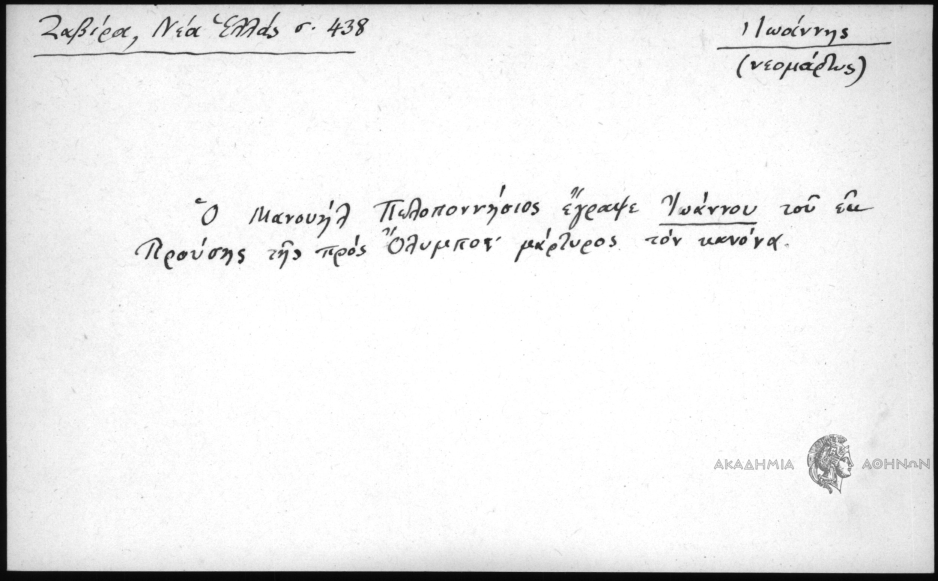 Ζαβίρα, Νέα Ἑλλάς σ. 438
Ἰωάννης
(νεομάρτυς)
Ὁ Μανουήλ Πελοποννήσιος ἔγραψε Ἰωάννου τοῦ ἐκ
Προύσης τῆς πρός Ὄλυμπον μάρτυρος τόν κανόνα.
ΑΚΑΔΗΜΙΑ ΑΘΗΝΩΝ